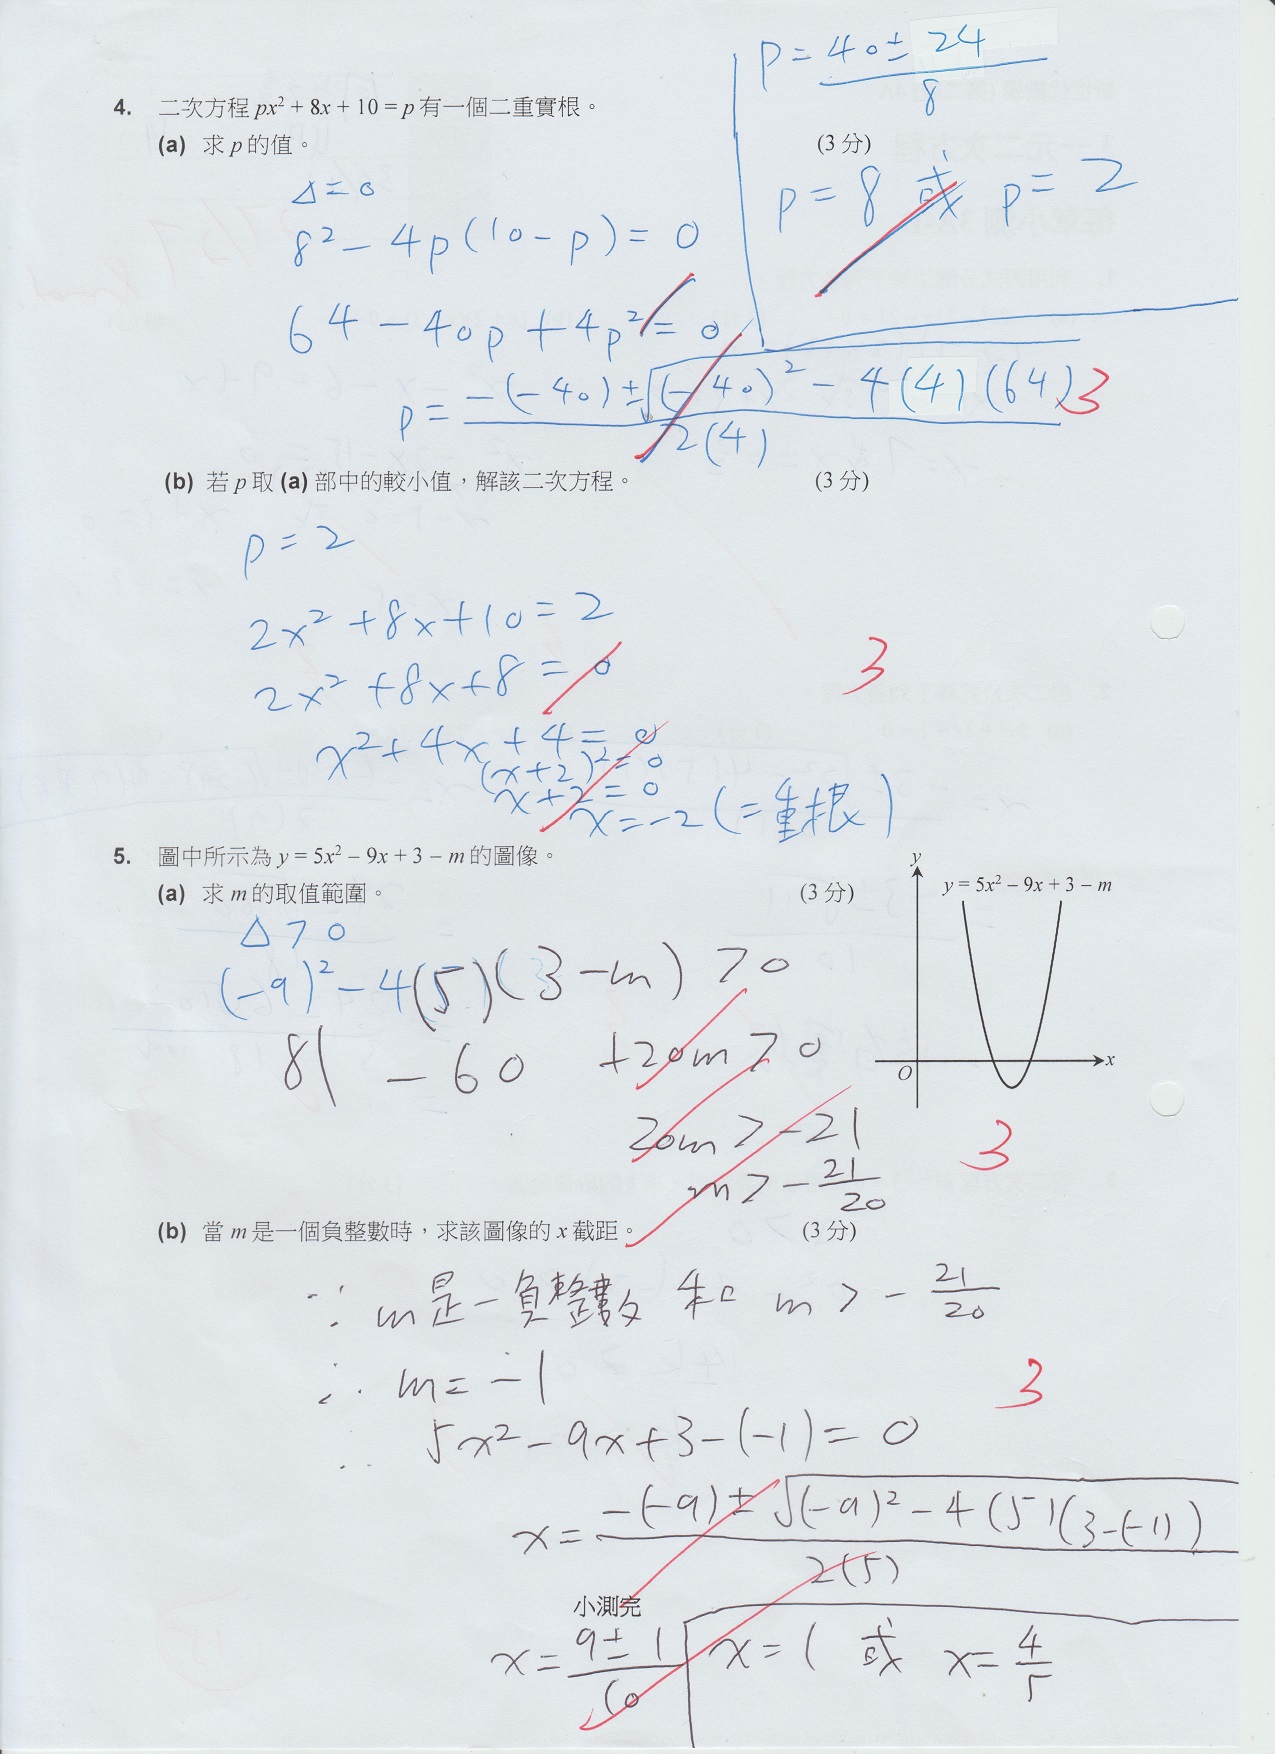 4. 二次方程 px² + 8x + 10 = p 有一個二重實根。
(a) 求 p 的值。 (3 分)
Δ = 0
8² − 4p(10 − p) = 0
64 − 40p + 4p² = 0
p = −(−40) ± √(−40)² − 4(4)(64) / 2(4)
3
p = 40 ± 24 / 8
p = 8 或 p = 2
(b) 若 p 取 (a) 部中的較小值，解該二次方程。 (3 分)
p = 2
2x² + 8x + 10 = 2
2x² + 8x + 8 = 0
3
x² + 4x + 4 = 0
(x + 2)² = 0
x + 2 = 0
x = −2 (二重根)
5. 圖中所示為 y = 5x² − 9x + 3 − m 的圖像。
(a) 求 m 的取值範圍。 (3 分)
y
y = 5x² − 9x + 3 − m
O
x
Δ > 0
(−9)² − 4(5)(3 − m) > 0
81 − 60 + 20m > 0
20m > −21
3
m > −21/20
(b) 當 m 是一個負整數時，求該圖像的 x 截距。 (3 分)
∵ m 是一負整數 和 m > −21/20
∴ m = −1
3
∴ 5x² − 9x + 3 − (−1) = 0
x = −(−9) ± √(−9)² − 4(5)(3 − (−1)) / 2(5)
小測完
x = 9 ± 1 / 10
x = 1 或 x = 4/5